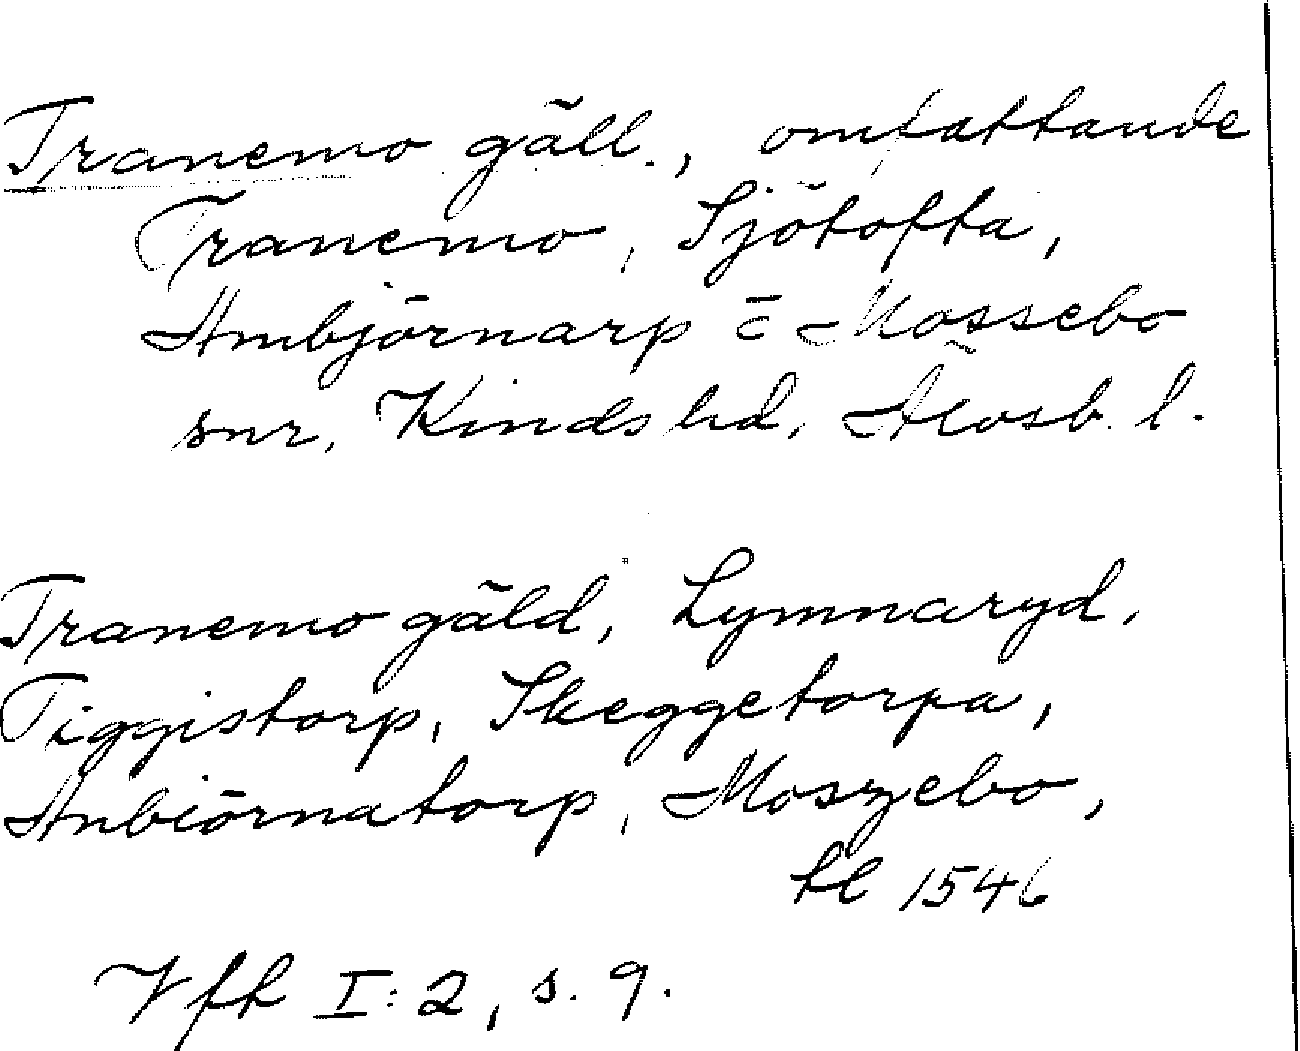 Tranemo gäll., omfattande
Tranemo, Sjötofta,
Ambjörnarp o Mossebo
snr, Kinds hd, Älvsb. l.
Tranemo gäld, Lymnaryd,
Tiggistorp, Skeggetorpa,
Anbiörnatorp, Moszebo,
tl 1546
Vfk I:2, s. 9.